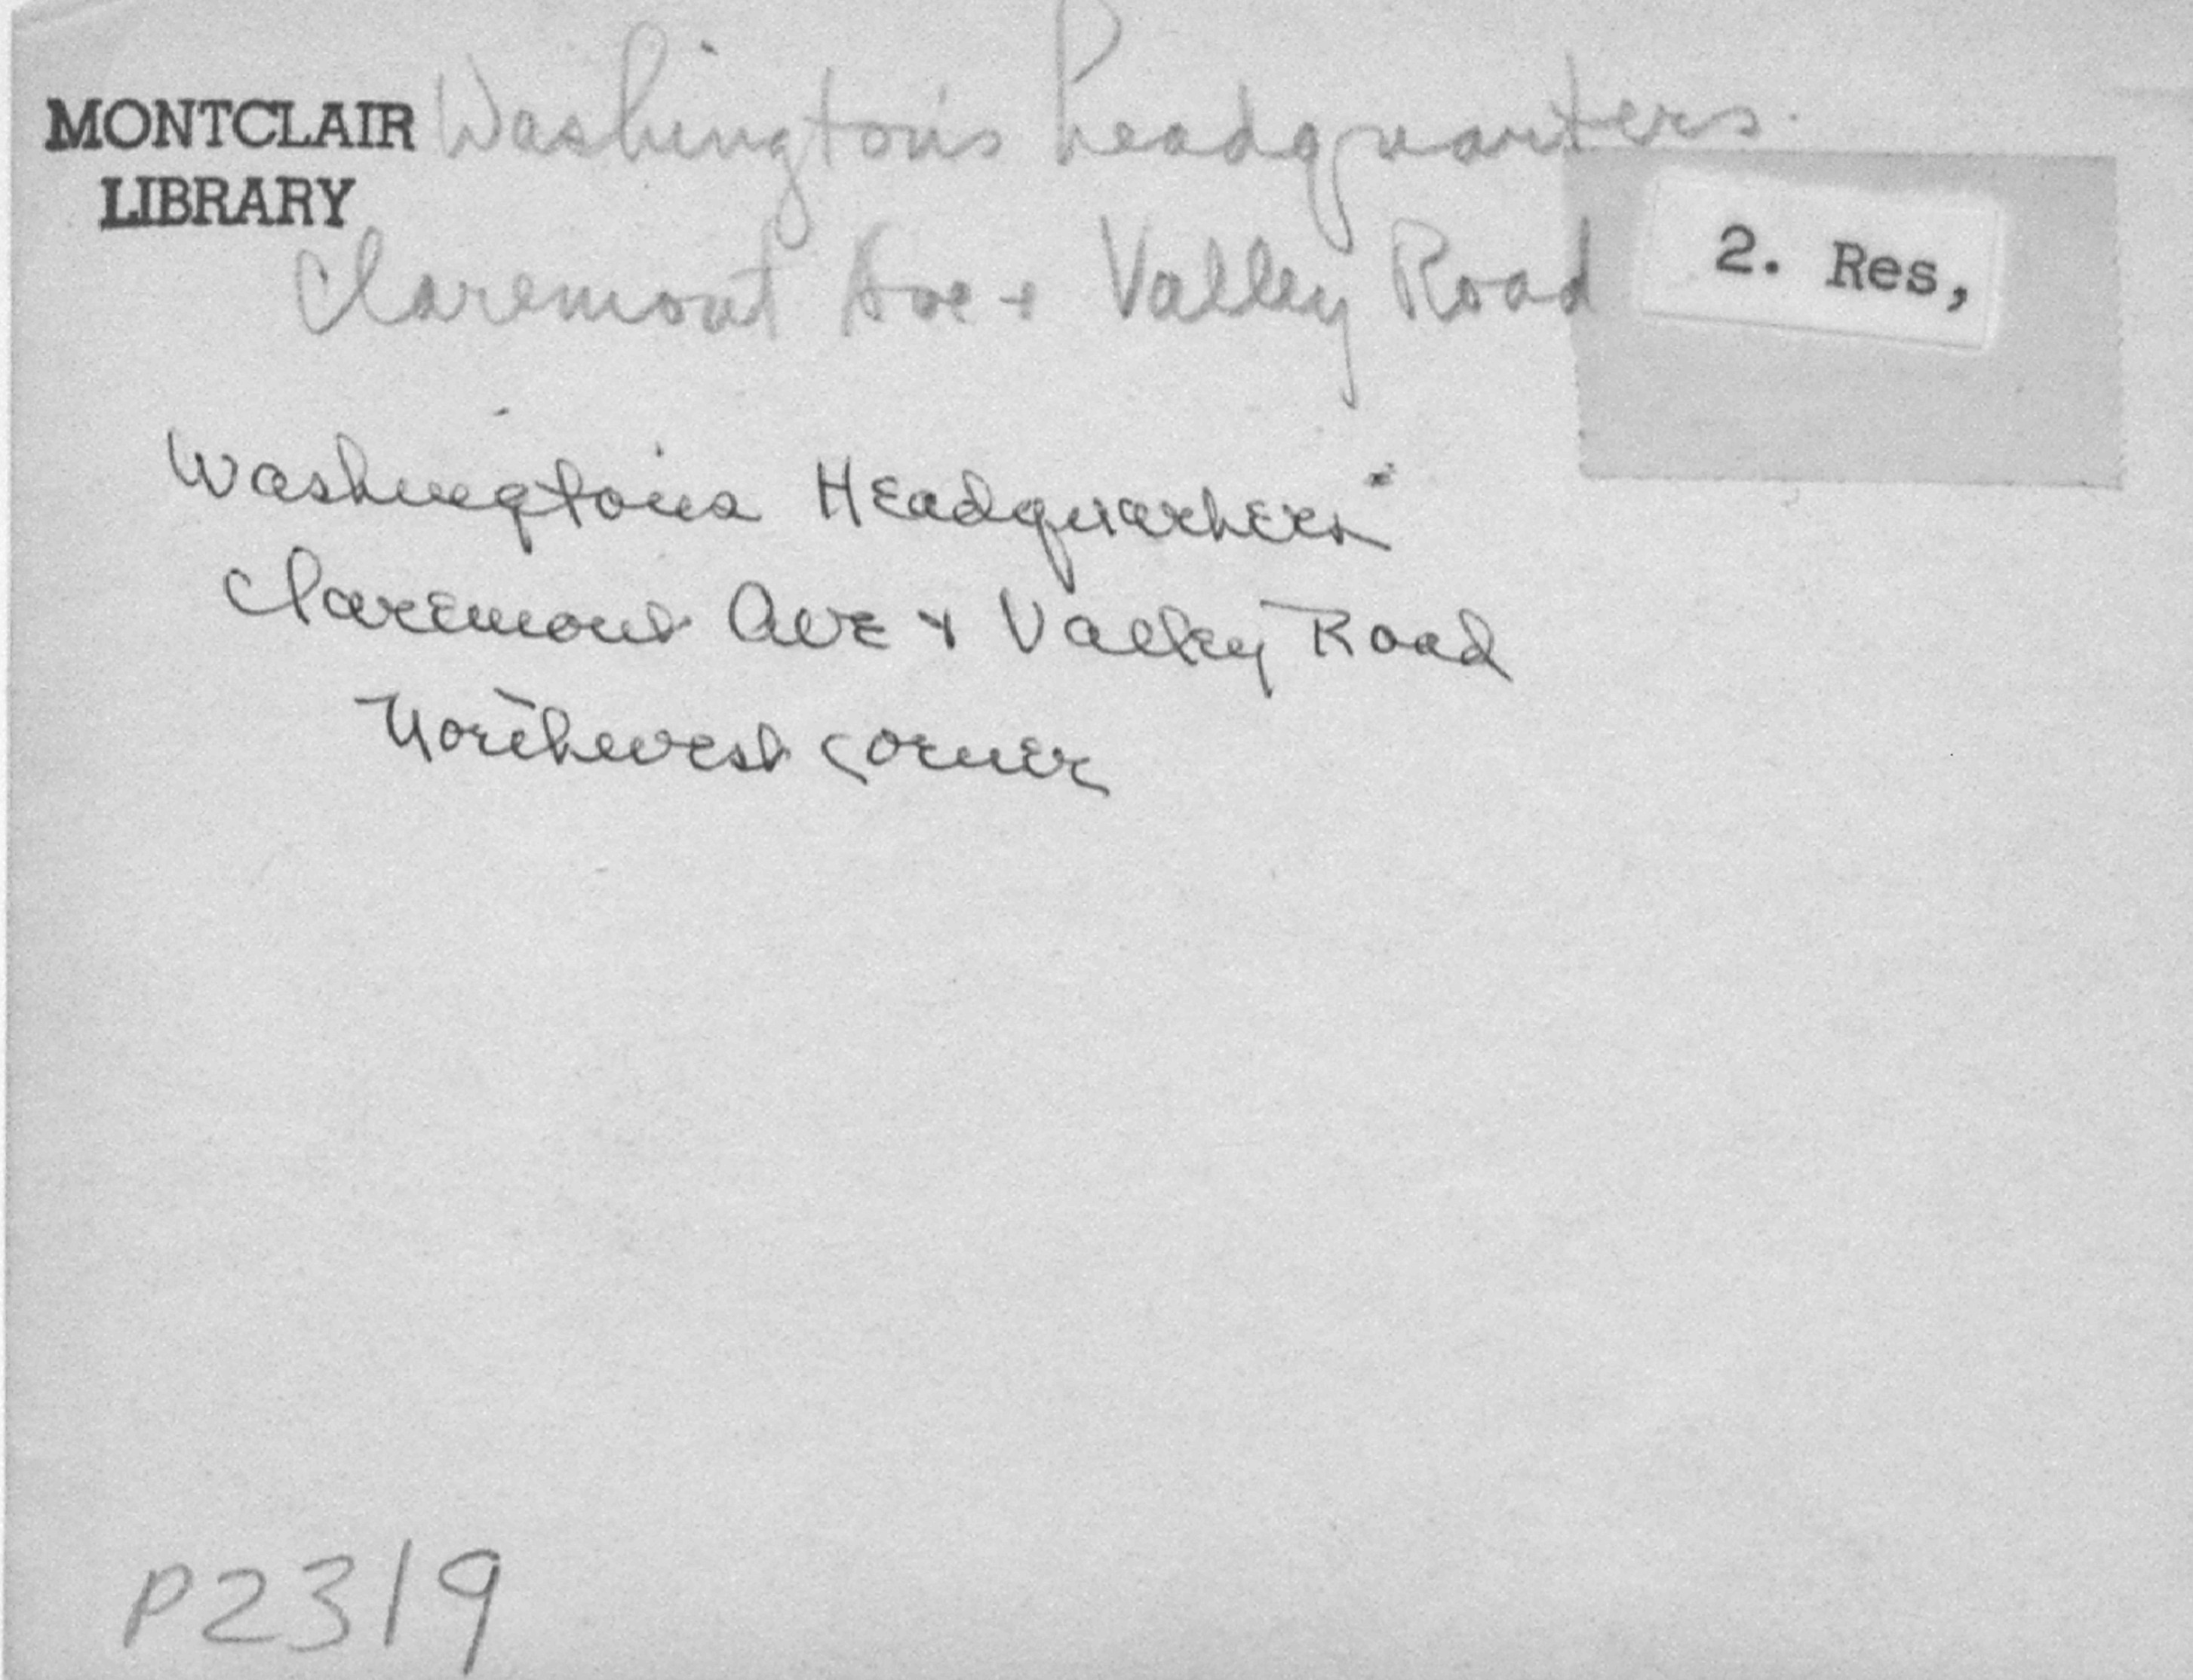 MONTCLAIR
LIBRARY
Washington's headquarters.
Claremont Ave + Valley Road
2. Res,
Washington's Headquarters"
Claremont Ave + Valley Road
Northwest corner
P2319